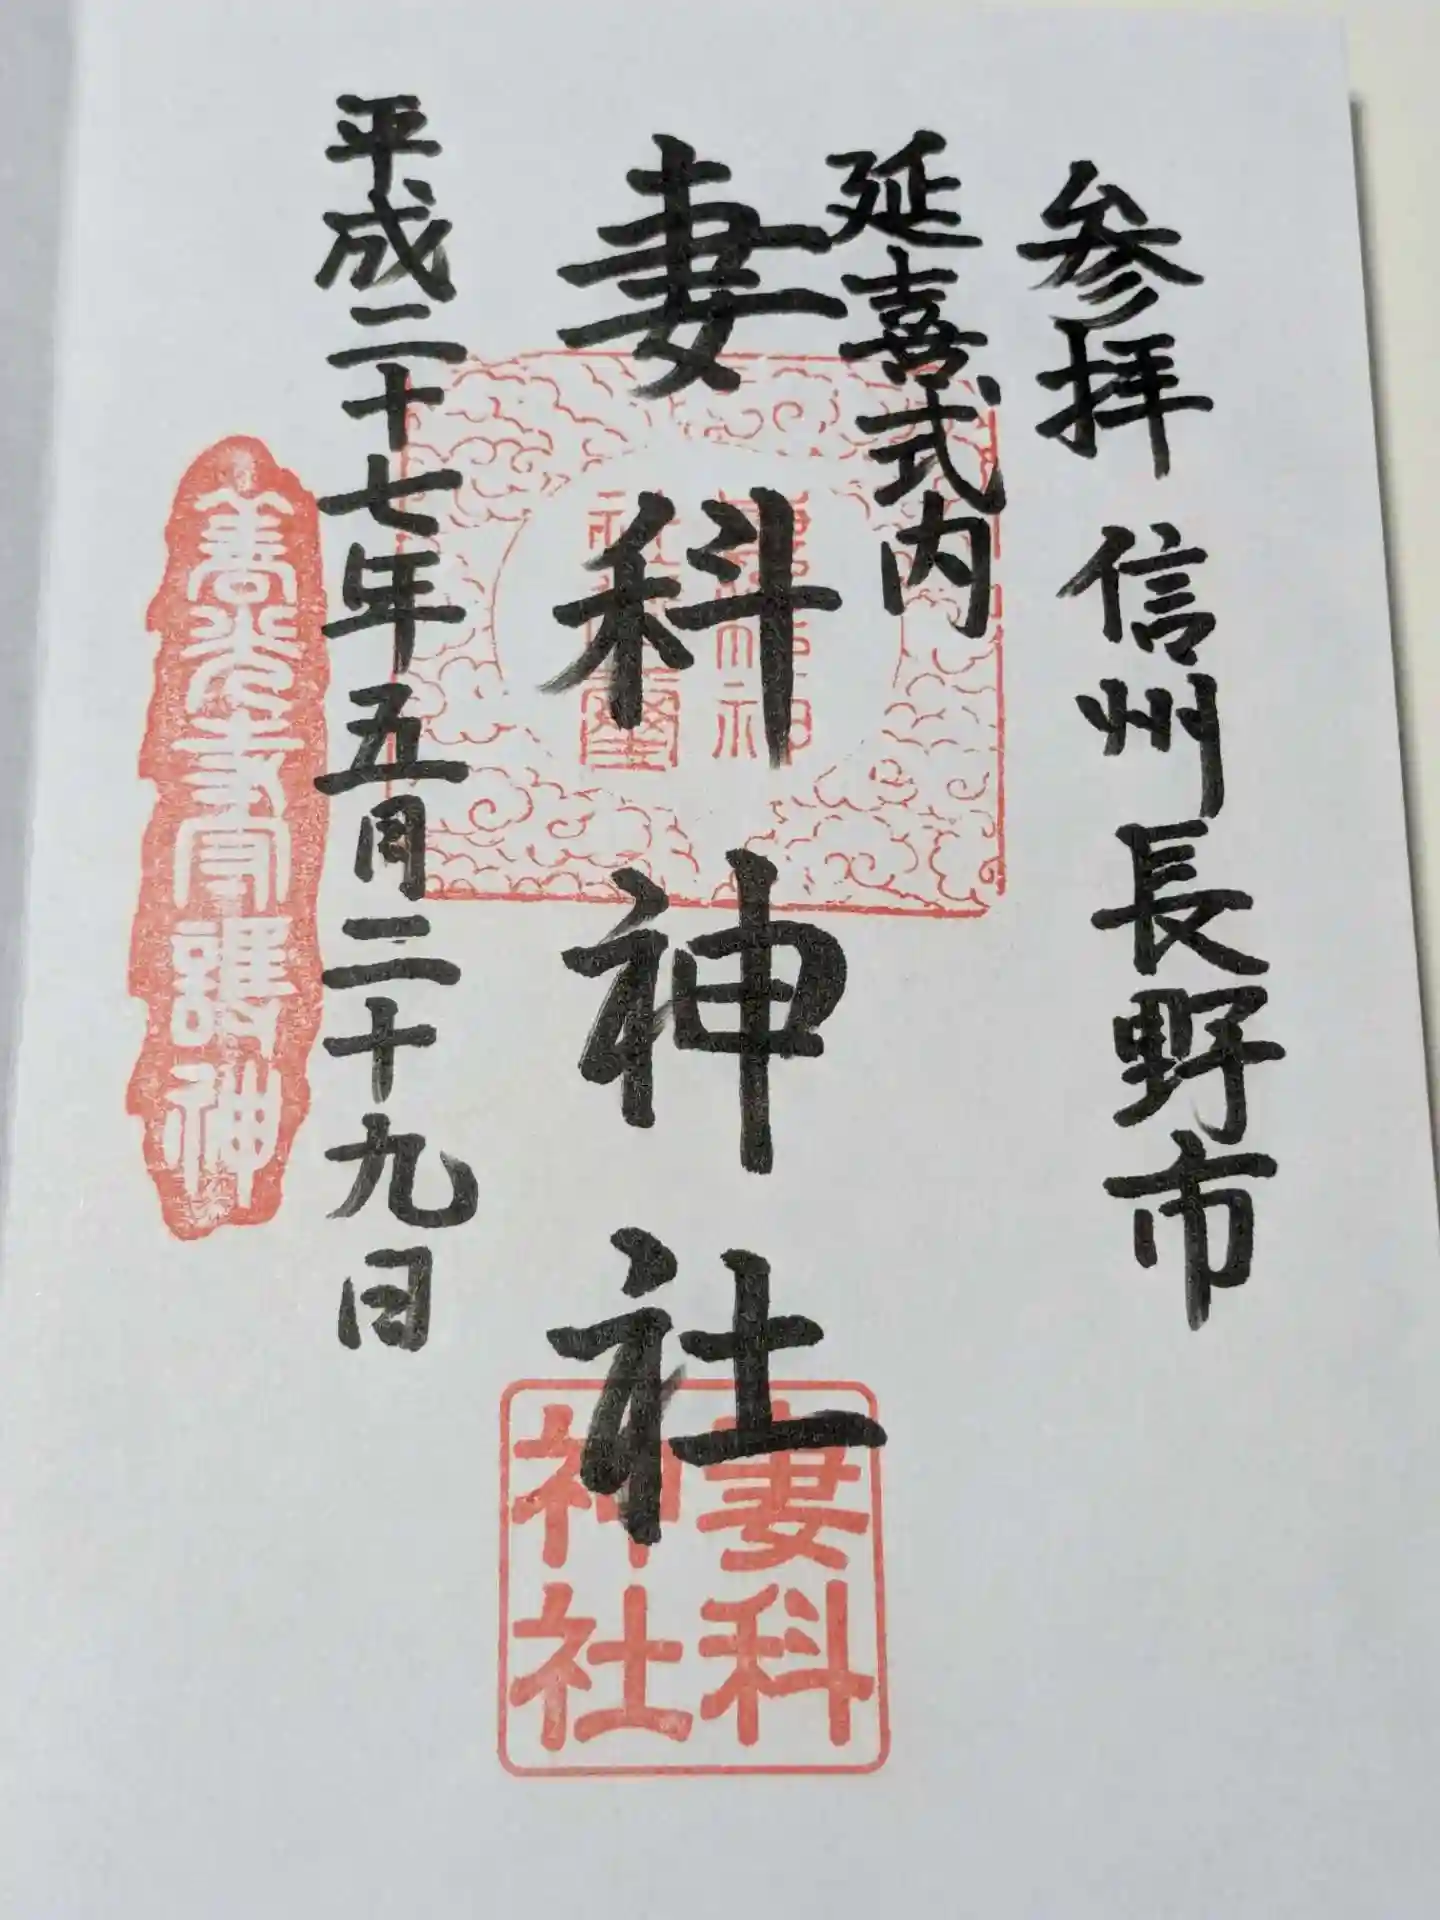 参拝 信州長野市
延喜式内
妻科神社
妻科
神社
平成二十七年五月二十九日
善光寺守護神